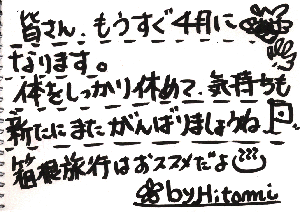 皆さん、もうすぐ4月に
なります。
体をしっかり休めて、気持ちも
新たにまたがんばりましょうね
箱根旅行はおススメだよ
by Hitomi